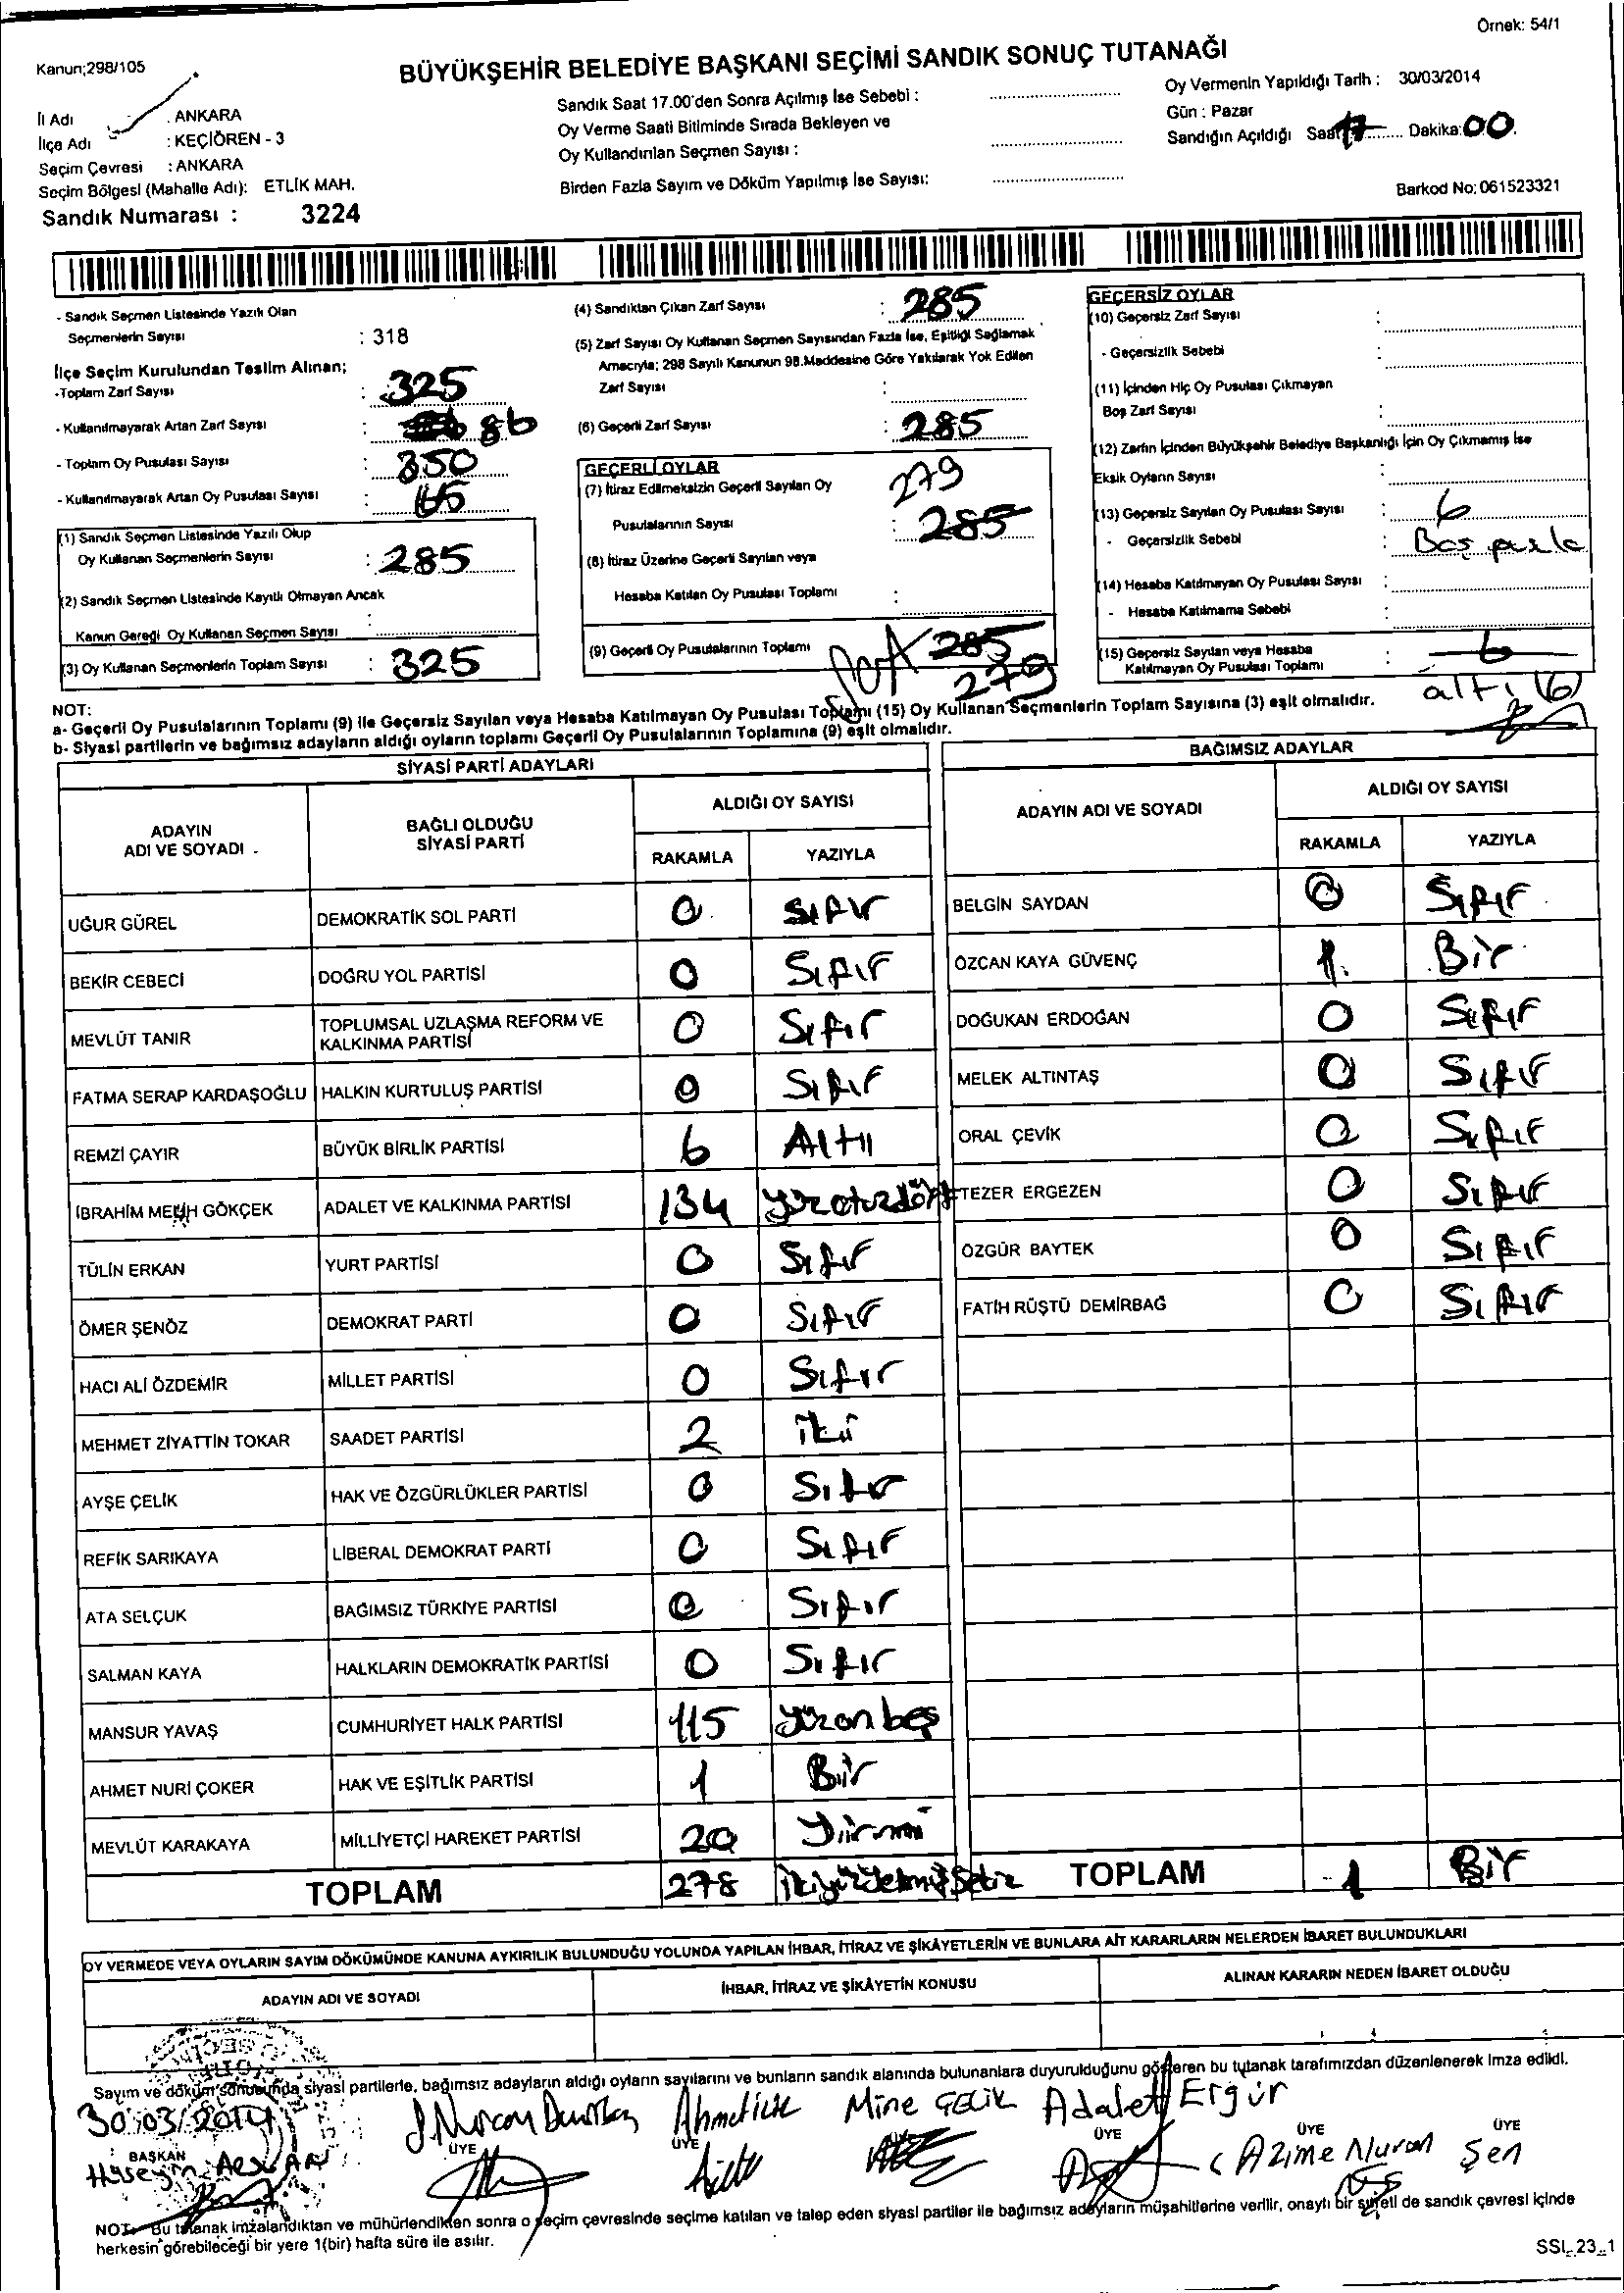 Örnek: 54/1
Kanun;298/105
BÜYÜKŞEHİR BELEDİYE BAŞKANI SEÇİMİ SANDIK SONUÇ TUTANAĞI
İl Adı : ANKARA
İlçe Adı : KEÇİÖREN - 3
Seçim Çevresi : ANKARA
Seçim Bölgesi (Mahalle Adı): ETLİK MAH.
Sandık Numarası : 3224
Sandık Saat 17.00'den Sonra Açılmış İse Sebebi :
Oy Verme Saati Bitiminde Sırada Bekleyen ve
Oy Kullandırılan Seçmen Sayısı :
Birden Fazla Sayım ve Döküm Yapılmış İse Sayısı:
Oy Vermenin Yapıldığı Tarih : 30/03/2014
Gün : Pazar
Sandığın Açıldığı Saat 17 Dakika: 00
Barkod No: 061523321
- Sandık Seçmen Listesinde Yazılı Olan
Seçmenlerin Sayısı : 318
İlçe Seçim Kurulundan Teslim Alınan;
-Toplam Zarf Sayısı : 325
- Kullanılmayarak Artan Zarf Sayısı : 86
- Toplam Oy Pusulası Sayısı : 350
- Kullanılmayarak Artan Oy Pusulası Sayısı : 65
(1) Sandık Seçmen Listesinde Yazılı Olup
Oy Kullanan Seçmenlerin Sayısı : 285
(2) Sandık Seçmen Listesinde Kayıtlı Olmayan Ancak
Kanun Gereği Oy Kullanan Seçmen Sayısı :
(3) Oy Kullanan Seçmenlerin Toplam Sayısı : 325
(4) Sandıktan Çıkan Zarf Sayısı : 285
(5) Zarf Sayısı Oy Kullanan Seçmen Sayısından Fazla İse, Eşitliği Sağlamak
Amacıyla; 298 Sayılı Kanunun 98.Maddesine Göre Yakılarak Yok Edilen
Zarf Sayısı :
(6) Geçerli Zarf Sayısı : 285
GEÇERLİ OYLAR
(7) İtiraz Edilmeksizin Geçerli Sayılan Oy 279
Pusulalarının Sayısı : 285
(8) İtiraz Üzerine Geçerli Sayılan veya
Hesaba Katılan Oy Pusulası Toplamı :
(9) Geçerli Oy Pusulalarının Toplamı 285
279
GEÇERSİZ OYLAR
(10) Geçersiz Zarf Sayısı :
- Geçersizlik Sebebi :
(11) İçinden Hiç Oy Pusulası Çıkmayan
Boş Zarf Sayısı :
(12) Zarfın İçinden Büyükşehir Belediye Başkanlığı İçin Oy Çıkmamış İse
Eksik Oyların Sayısı :
(13) Geçersiz Sayılan Oy Pusulası Sayısı : 6
- Geçersizlik Sebebi :
(14) Hesaba Katılmayan Oy Pusulası Sayısı :
- Hesaba Katılmama Sebebi :
(15) Geçersiz Sayılan veya Hesaba
Katılmayan Oy Pusulası Toplamı : 6
altı (6)
NOT:
a- Geçerli Oy Pusulalarının Toplamı (9) ile Geçersiz Sayılan veya Hesaba Katılmayan Oy Pusulası Toplamı (15) Oy Kullanan Seçmenlerin Toplam Sayısına (3) eşit olmalıdır.
b- Siyasi partilerin ve bağımsız adayların aldığı oyların toplamı Geçerli Oy Pusulalarının Toplamına (9) eşit olmalıdır.
SİYASİ PARTİ ADAYLARI
ADAYIN
ADI VE SOYADI
BAĞLI OLDUĞU
SİYASİ PARTİ
ALDIĞI OY SAYISI
RAKAMLA YAZIYLA
UĞUR GÜREL DEMOKRATİK SOL PARTİ 0 Sıfır
BEKİR CEBECİ DOĞRU YOL PARTİSİ 0 Sıfır
MEVLÜT TANIR TOPLUMSAL UZLAŞMA REFORM VE
KALKINMA PARTİSİ 0 Sıfır
FATMA SERAP KARDAŞOĞLU HALKIN KURTULUŞ PARTİSİ 0 Sıfır
REMZİ ÇAYIR BÜYÜK BİRLİK PARTİSİ 6 Altı
İBRAHİM MELİH GÖKÇEK ADALET VE KALKINMA PARTİSİ 134 yüzotuzdört
TÜLİN ERKAN YURT PARTİSİ 0 Sıfır
ÖMER ŞENÖZ DEMOKRAT PARTİ 0 Sıfır
HACI ALİ ÖZDEMİR MİLLET PARTİSİ 0 Sıfır
MEHMET ZİYATTİN TOKAR SAADET PARTİSİ 2 iki
AYŞE ÇELİK HAK VE ÖZGÜRLÜKLER PARTİSİ 0 Sıfır
REFİK SARIKAYA LİBERAL DEMOKRAT PARTİ 0 Sıfır
ATA SELÇUK BAĞIMSIZ TÜRKİYE PARTİSİ 0 Sıfır
SALMAN KAYA HALKLARIN DEMOKRATİK PARTİSİ 0 Sıfır
MANSUR YAVAŞ CUMHURİYET HALK PARTİSİ 115 yüzonbeş
AHMET NURİ ÇOKER HAK VE EŞİTLİK PARTİSİ 1 Bir
MEVLÜT KARAKAYA MİLLİYETÇİ HAREKET PARTİSİ 20 Yirmi
TOPLAM 278 ikiyüzyetmişsekiz
BAĞIMSIZ ADAYLAR
ADAYIN ADI VE SOYADI
ALDIĞI OY SAYISI
RAKAMLA YAZIYLA
BELGİN SAYDAN 0 Sıfır
ÖZCAN KAYA GÜVENÇ 1 Bir
DOĞUKAN ERDOĞAN 0 Sıfır
MELEK ALTINTAŞ 0 Sıfır
ORAL ÇEVİK 0 Sıfır
TEZER ERGEZEN 0 Sıfır
ÖZGÜR BAYTEK 0 Sıfır
FATİH RÜŞTÜ DEMİRBAĞ 0 Sıfır
TOPLAM 1 Bir
OY VERMEDE VEYA OYLARIN SAYIM DÖKÜMÜNDE KANUNA AYKIRILIK BULUNDUĞU YOLUNDA YAPILAN İHBAR, İTİRAZ VE ŞİKÂYETLERİN VE BUNLARA AİT KARARLARIN NELERDEN İBARET BULUNDUKLARI
ADAYIN ADI VE SOYADI İHBAR, İTİRAZ VE ŞİKÂYETİN KONUSU ALINAN KARARIN NEDEN İBARET OLDUĞU
Sayım ve döküm sonucunda siyasi partilerle, bağımsız adayların aldığı oyların sayılarını ve bunların sandık alanında bulunanlara duyurulduğunu gösteren bu tutanak tarafımızdan düzenlenerek imza edildi.
30/03/2014
Mine ÇELİK Adalet Ergür
BAŞKAN ÜYE ÜYE ÜYE ÜYE ÜYE
Hüseyin Azime Nuran Şen
NOT: Bu tutanak imzalandıktan ve mühürlendikten sonra o seçim çevresinde seçime katılan ve talep eden siyasi partiler ile bağımsız adayların müşahitlerine verilir, onaylı bir sureti de sandık çevresi içinde
herkesin görebileceği bir yere 1(bir) hafta süre ile asılır.
SSI_23_1